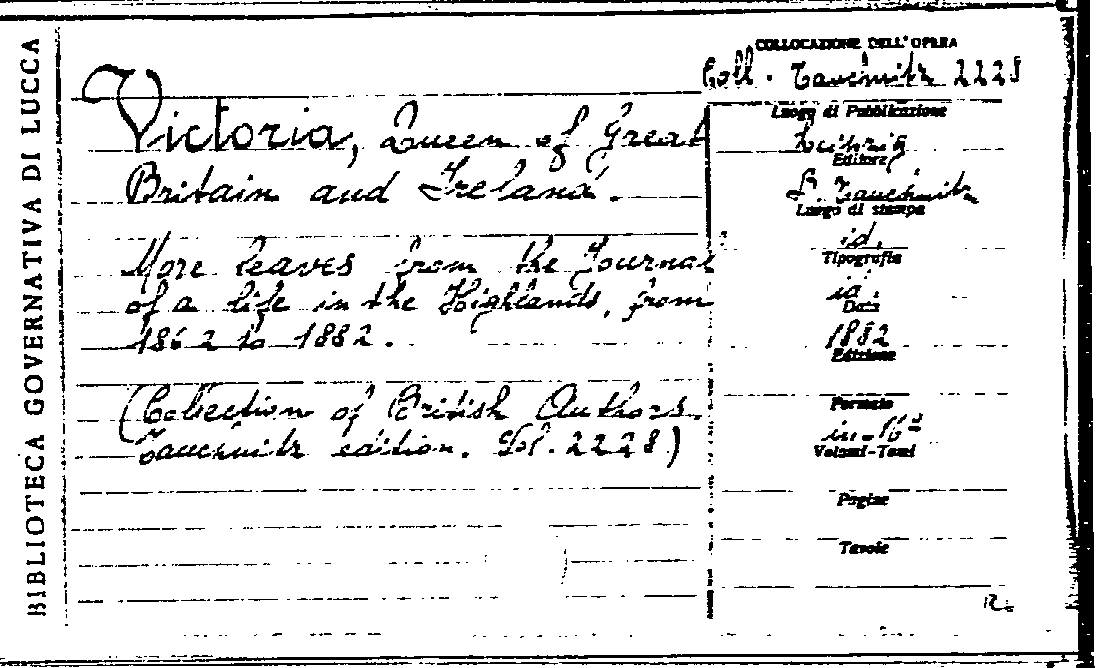 BIBLIOTECA GOVERNATIVA DI LUCCA
Victoria, Queen of Great
Britain and Ireland.
More leaves from the Journal
of a life in the Highlands, from
1862 to 1882.
(Collection of British Authors
Tauchnitz edition. Vol. 2228)
COLLOCAZIONE DELL'OPERA
Coll. Tauchnitz 2228
Luogo di Pubblicazione
Leipzig
Editore
B. Tauchnitz
Luogo di stampa
id.
Tipografia
id.
Data
1882
Edizione
Formato
in-16º
Volumi-Tomi
Pagine
Tavole